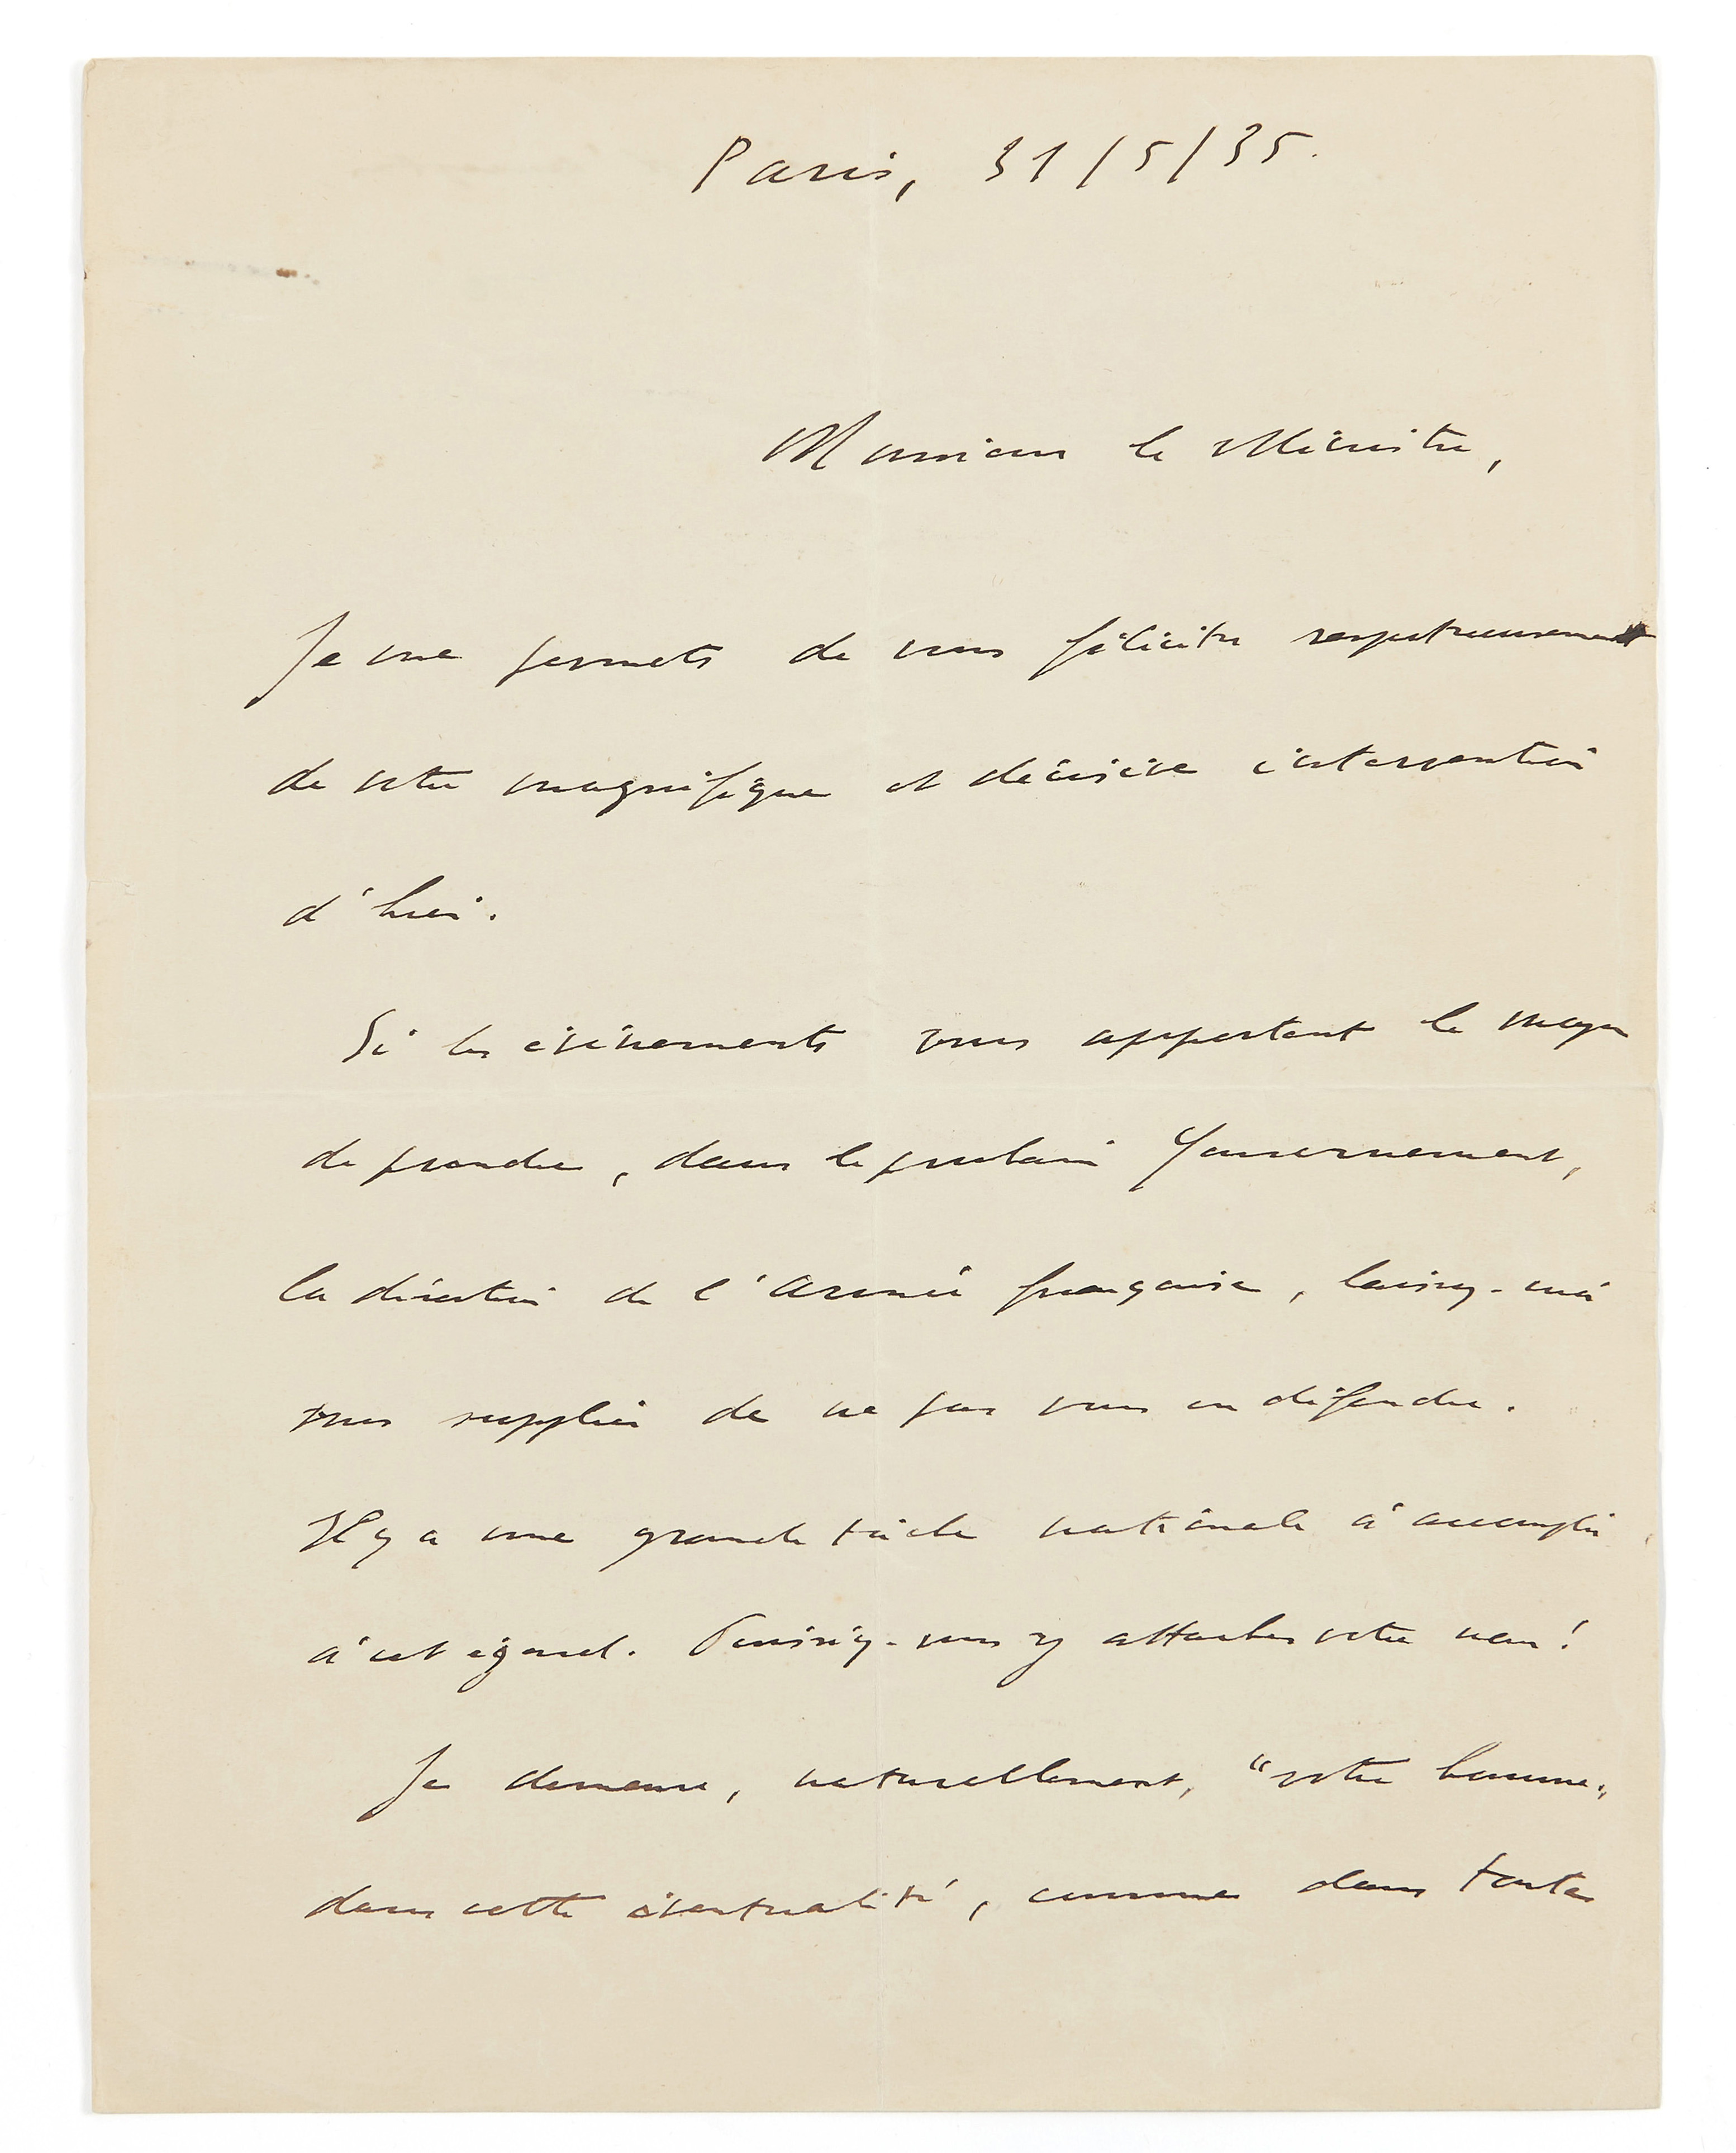 Paris, 31/5/35.
Monsieur le Ministre,
Je me permets de vous féliciter respectueusement
de votre magnifique et décisive intervention
d'hier.
Si les évènements vous apportent le moyen
de prendre, dans le prochain Gouvernement,
la direction de l'Armée française, laissez-moi
vous supplier de ne pas vous en défendre.
Il y a une grande tâche nationale à accomplir
à cet égard. Puissiez-vous y attacher votre nom!
Je demeure, naturellement, "votre homme"
dans cette éventualité, comme dans toutes